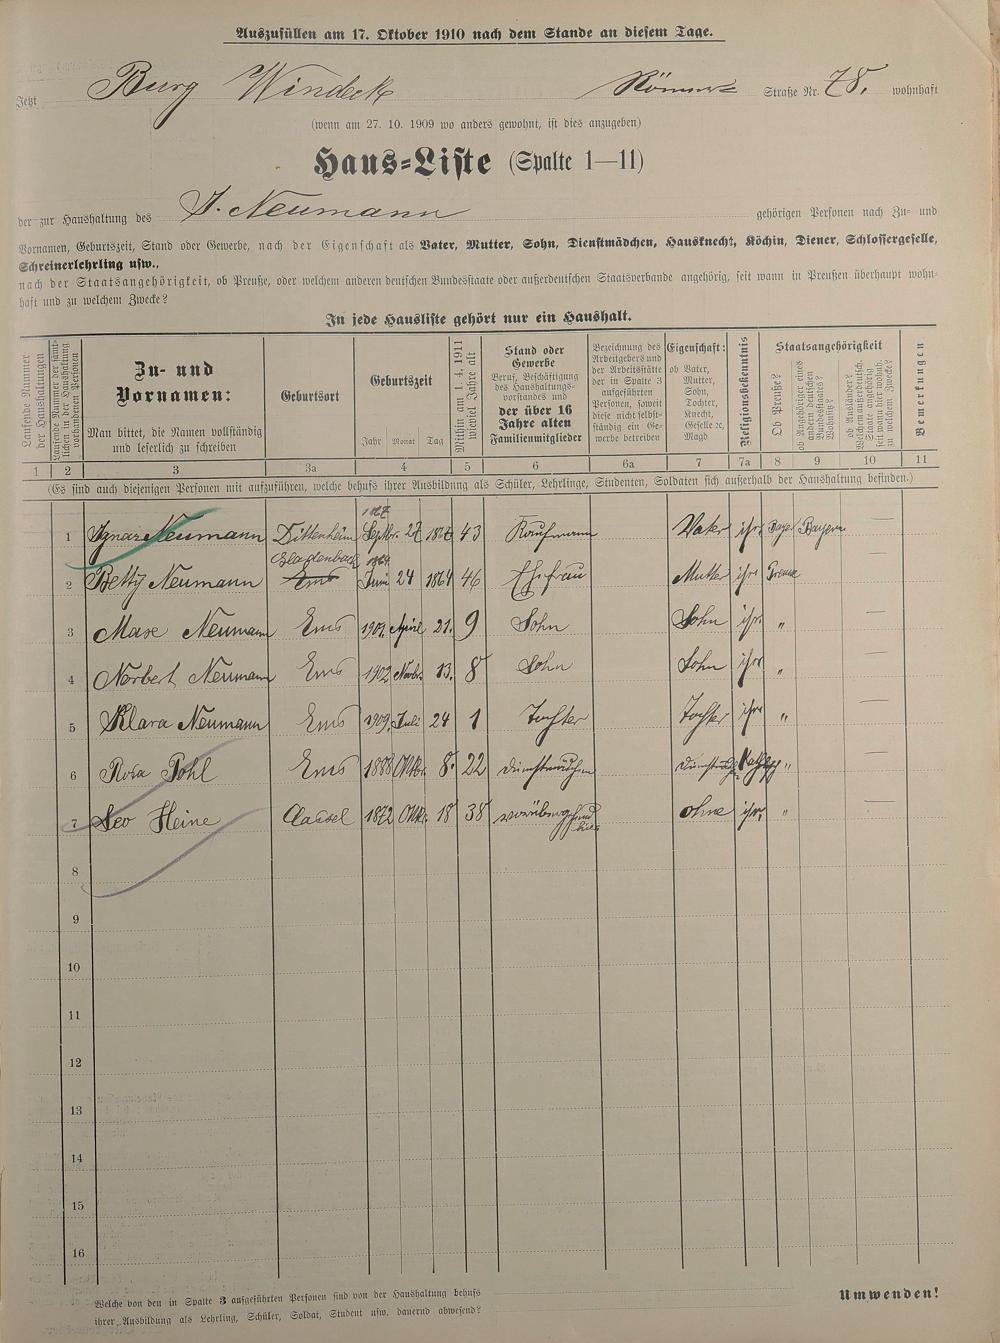 Auszufüllen am 17. Oktober 1910 nach dem Stande an diesem Tage.
Jetzt Burg Windeck Römer Straße Nr. 78. wohnhaft
(wenn am 27. 10. 1909 wo anders gewohnt, ist dies anzugeben)
Haus-Liste (Spalte 1—11)
der zur Haushaltung des J. Neumann gehörigen Personen nach Zu- und
Vornamen, Geburtszeit, Stand oder Gewerbe, nach der Eigenschaft als Vater, Mutter, Sohn, Dienstmädchen, Hausknecht, Köchin, Diener, Schlossergeselle,
Schreinerlehrling usw.,
nach der Staatsangehörigkeit, ob Preuße, oder welchem anderen deutschen Bundesstaate oder außerdeutschen Staatsverbande angehörig, seit wann in Preußen überhaupt wohn-
haft und zu welchem Zwecke?
In jede Hausliste gehört nur ein Haushalt.
Laufende Nummer der Haushaltungen
Laufende Nummer der sämt-
lichen in der Haushaltung
vorhandenen Personen
Zu- und
Vornamen:
Man bittet, die Namen vollständig
und leserlich zu schreiben
Geburtsort
Geburtszeit
Jahr Monat Tag
Mithin am 1. 4. 1911
wieviel Jahre alt
Stand oder
Gewerbe
Beruf, Beschäftigung
des Haushaltungs-
vorstandes und
der über 16
Jahre alten
Familienmitglieder
Bezeichnung des
Arbeitgebers und
der Arbeitsstätte
der in Spalte 3
aufgeführten
Personen, soweit
diese nicht selbst-
ständig ein Ge-
werbe betreiben
Eigenschaft:
ob Vater,
Mutter,
Sohn,
Tochter,
Knecht,
Geselle 2c,
Magd
Religionsbekenntnis
Staatsangehörigkeit
Ob Preuße?
ob Angehöriger eines
andern deutschen
Bundesstaates?
Wohnsitz?
ob Ausländer?
Welchem außerdeutsch.
Staate angehörig
seit wann hier wohnh.
zu welchem Zwecke?
Bemerkungen
1 2 3 3a 4 5 6 6a 7 7a 8 9 10 11
(Es sind auch diejenigen Personen mit aufzuführen, welche behufs ihrer Ausbildung als Schüler, Lehrlinge, Studenten, Soldaten sich außerhalb der Haushaltung befinden.)
1867
1 Ignaz Neumann Dittenheim Septbr. 27 1867 43 Kaufmann Vater isr. Bayer Bayern —
Gladenbach 1864
2 Betty Neumann Ems Juni 24 1864 46 Ehefrau Mutter isr. Preuße —
3 Max Neumann Ems 1901. April 21. 9 Sohn Sohn isr. „ —
4 Norbert Neumann Ems 1902 Novbr. 13. 8 Sohn Sohn isr. „ —
5 Klara Neumann Ems 1909. Juli 24 1 Tochter Tochter isr. „ —
6 Rosa Pohl Ems 1888 Oktbr. 8. 22 Dienstmädchen Kathlsch „ —
7 Leo Heine 1872 Oktr. 18 38 ohne isr. „ —
8
9
10
11
12
13
14
15
16
Welche von den in Spalte 3 aufgeführten Personen sind von der Haushaltung behufs
ihrer Ausbildung als Lehrling, Schüler, Soldat, Student usw. dauernd abwesend?
Umwenden!